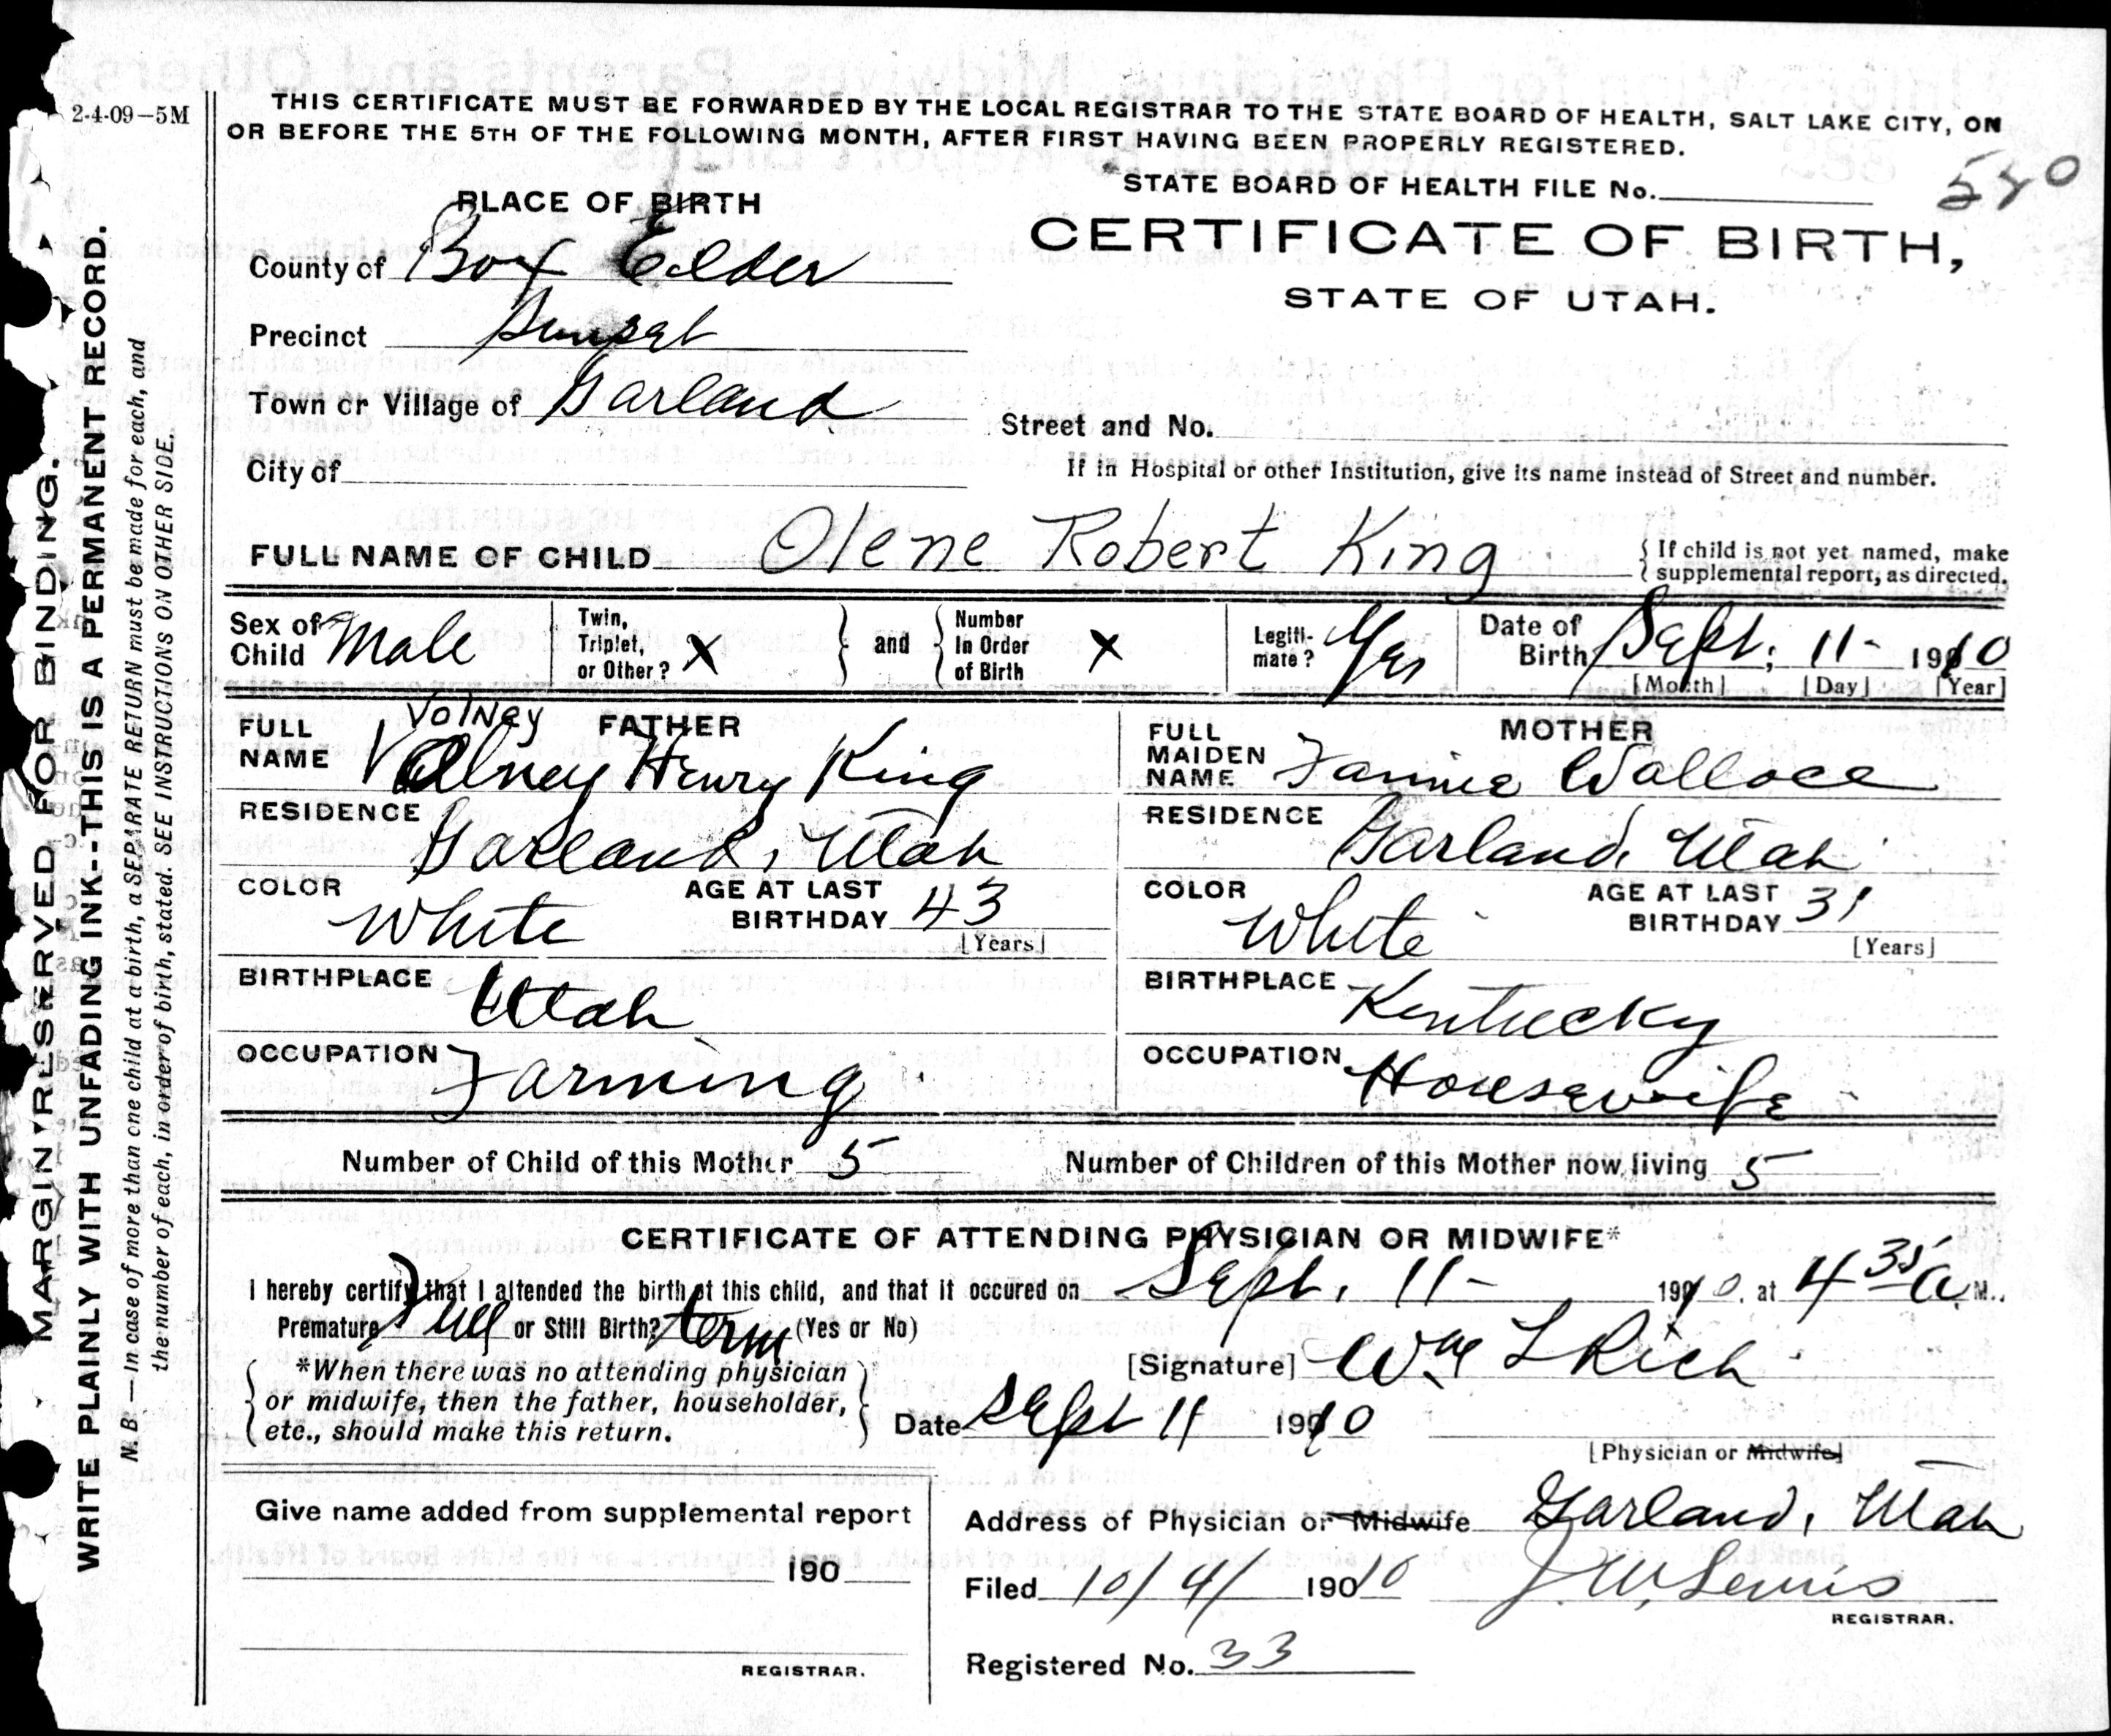 2-4-09-5M
THIS CERTIFICATE MUST BE FORWARDED BY THE LOCAL REGISTRAR TO THE STATE BOARD OF HEALTH, SALT LAKE CITY, ON
OR BEFORE THE 5TH OF THE FOLLOWING MONTH, AFTER FIRST HAVING BEEN PROPERLY REGISTERED.
STATE BOARD OF HEALTH FILE No.
PLACE OF BIRTH
CERTIFICATE OF BIRTH,
STATE OF UTAH.
County of Box Elder
Precinct Sunset
Town or Village of Garland
Street and No.
City of
If in Hospital or other Institution, give its name instead of Street and number.
FULL NAME OF CHILD Olene Robert King
If child is not yet named, make
supplemental report, as directed.
Sex of Child Male
Twin, Triplet, or Other? X
and
Number In Order of Birth X
Legiti-mate? Yes
Date of Birth Sept. 11- 1910
[Month] [Day] [Year]
FATHER
Volney
FULL NAME Volney Henry King
RESIDENCE Garland, Utah
COLOR White
AGE AT LAST BIRTHDAY 43
[Years]
BIRTHPLACE Utah
OCCUPATION Farming
MOTHER
FULL MAIDEN NAME Fannie Wallace
RESIDENCE Garland, Utah
COLOR White
AGE AT LAST BIRTHDAY 31
[Years]
BIRTHPLACE Kentucky
OCCUPATION Housewife
Number of Child of this Mother 5
Number of Children of this Mother now living 5
CERTIFICATE OF ATTENDING PHYSICIAN OR MIDWIFE*
I hereby certify that I attended the birth of this child, and that it occured on Sept. 11- 1910, at 4 35 a M.,
Premature Full or Still Birth? term (Yes or No)
*When there was no attending physician
or midwife, then the father, householder,
etc., should make this return.
[Signature] Wm L Rich
Date Sept 11 1910
[Physician or Midwife]
Give name added from supplemental report
190
REGISTRAR.
Address of Physician or Midwife Garland, Utah
Filed 10/4/ 19010 J. W. Lewis
REGISTRAR.
Registered No. 33
MARGIN RESERVED FOR BINDING.
WRITE PLAINLY WITH UNFADING INK--THIS IS A PERMANENT RECORD.
N. B.—In case of more than one child at a birth, a SEPARATE RETURN must be made for each, and
the number of each, in order of birth, stated. SEE INSTRUCTIONS ON OTHER SIDE.